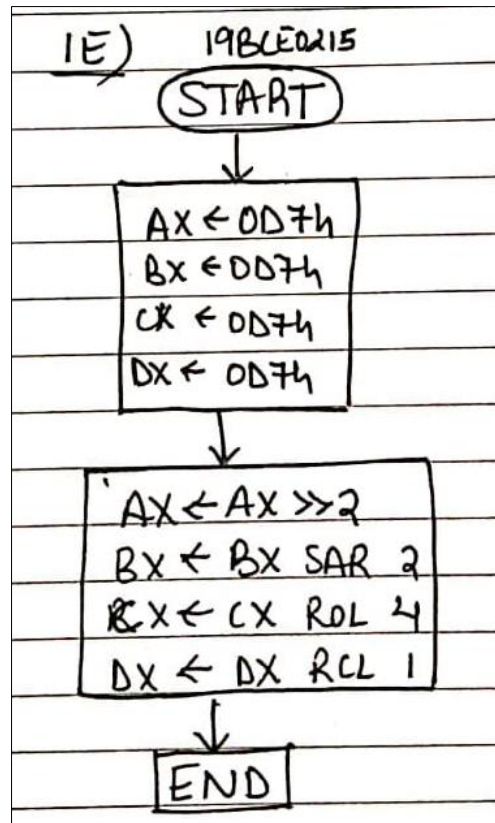 1E) 19BCE0215
START
AX ← 0D7h
BX ← 0D7h
CX ← 0D7h
DX ← 0D7h
AX ← AX >> 2
BX ← BX SAR 2
CX ← CX ROL 4
DX ← DX RCL 1
END